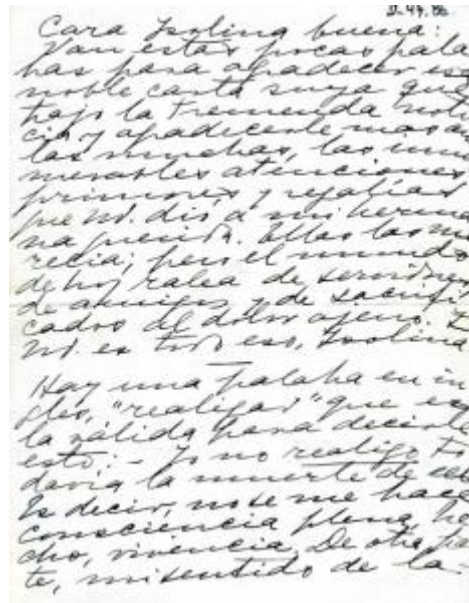 Cara Isolina buena:
Van estas pocas pala
bras para agradecer esa
noble carta suya que
trajo la tremenda noti
cia y agradecerle mas aún
las muchas, las innu
merables atenciones
primores y regalías
que Ud. dió a mi herma
na querida. Ellas las me
recía; pero el mundo
de hoy ralea de servidores
de amigos y de sacrifi
cados al dolor ajeno. Y
Ud. es todo eso, Isolina
Hay una palabra en in
glés, "realizar" que es
la válida para decirle
esto: - Yo no realizo to
davía la muerte de
Es decir, no se me hace
consciencia plena, he
cho, vivencia. De otra par
te, mi sentido de la-